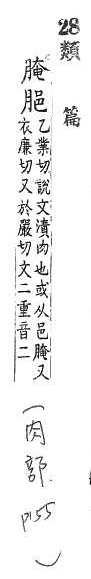 28
類篇
腌䏟乙業切說文漬肉也或从邑腌又
衣廉切又於嚴切文二重音二
(肉部.
P155)